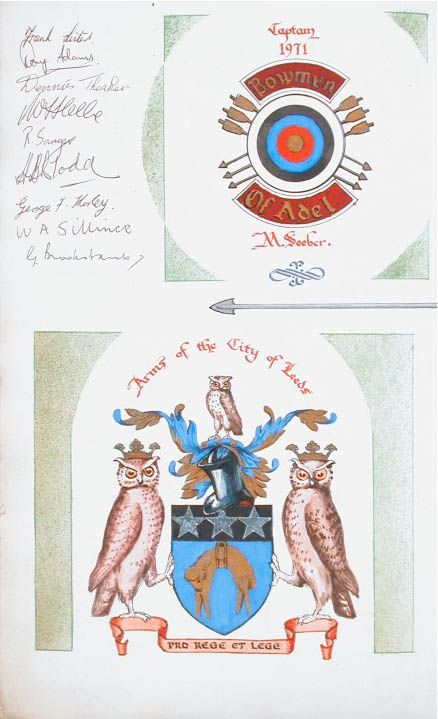 Frank Lister.
Ray Adams.
Dennis Thacker
R. Sanger
Todd
George F. Horley.
W A Sillince
G. Brooksbank
Captain
1971
Bowmen
Of Adel
M. Seeber.
Arms of the City of Leeds
PRO REGE ET LEGE